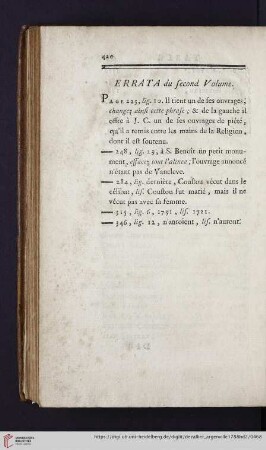 420
ERRATA du second Volume.
PAGE 225, lig. 10. Il tient un de ses ouvrages,
changez ainsi cette phrase, & de la gauche il
offre à J. C. un de ses ouvrages de piété,
qu'il a remis entre les mains de la Religion,
dont il est soutenu.
— 248, lig. 15, à S. Benoît un petit monu-
ment, effacez tout l'alinea; l'ouvrage annoncé
n'étant pas de Vancleve.
— 284, lig. derniere, Coustou vécut dans le
célibat, lis. Coustou fut marié, mais il ne
vécut pas avec sa femme.
— 315, lig. 6, 1751, lis. 1721.
— 346, lig. 12, n'auroient, lis. n'auront.